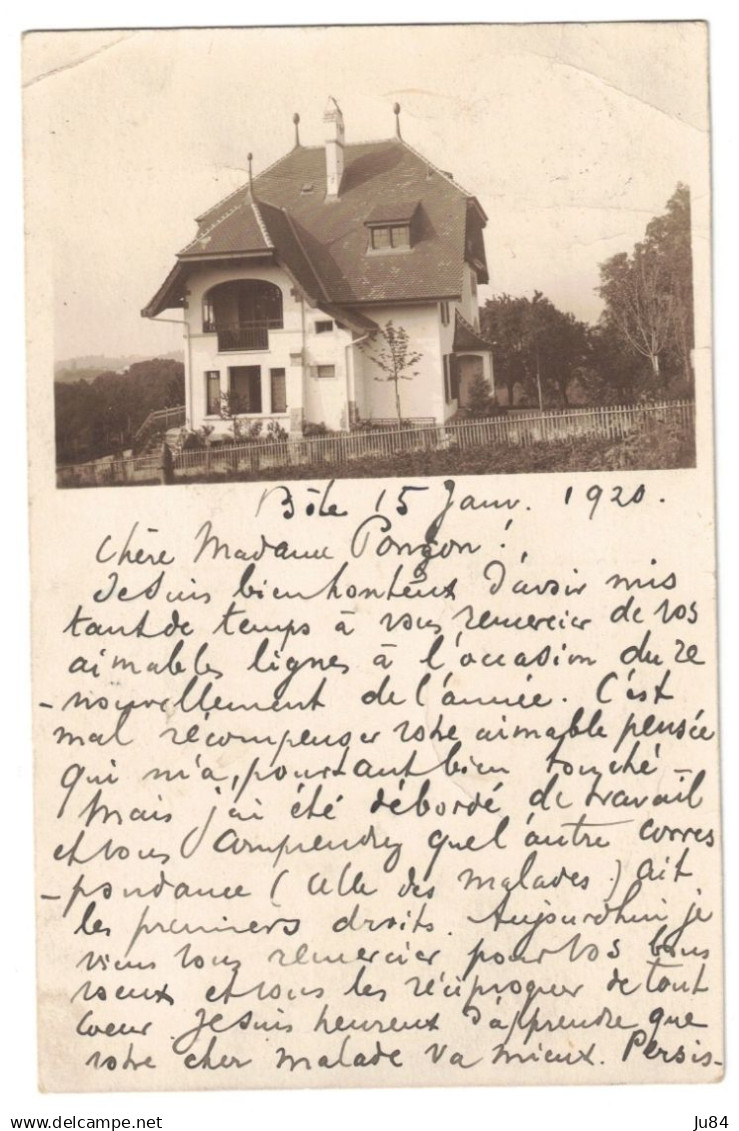 Bôle 15 Janv. 1920.
Chère Madame Ponçon !
Je suis bien honteux d'avoir mis
tant de temps à vous remercier de vos
aimables lignes à l'occasion du re
-nouvellement de l'année. C'est
mal récompenser votre aimable pensée
qui m'a, pourtant bien touché -
Mais j'ai été débordé de travail
et vous comprendrez que l'autre corres
-pondance (celle des malades) ait
les premiers droits. Aujourd'hui je
viens vous remercier pour vos bons
voeux et vous les réciproquer de tout
coeur. Je suis heureux d'apprendre que
votre cher malade va mieux. Persis-
ju84